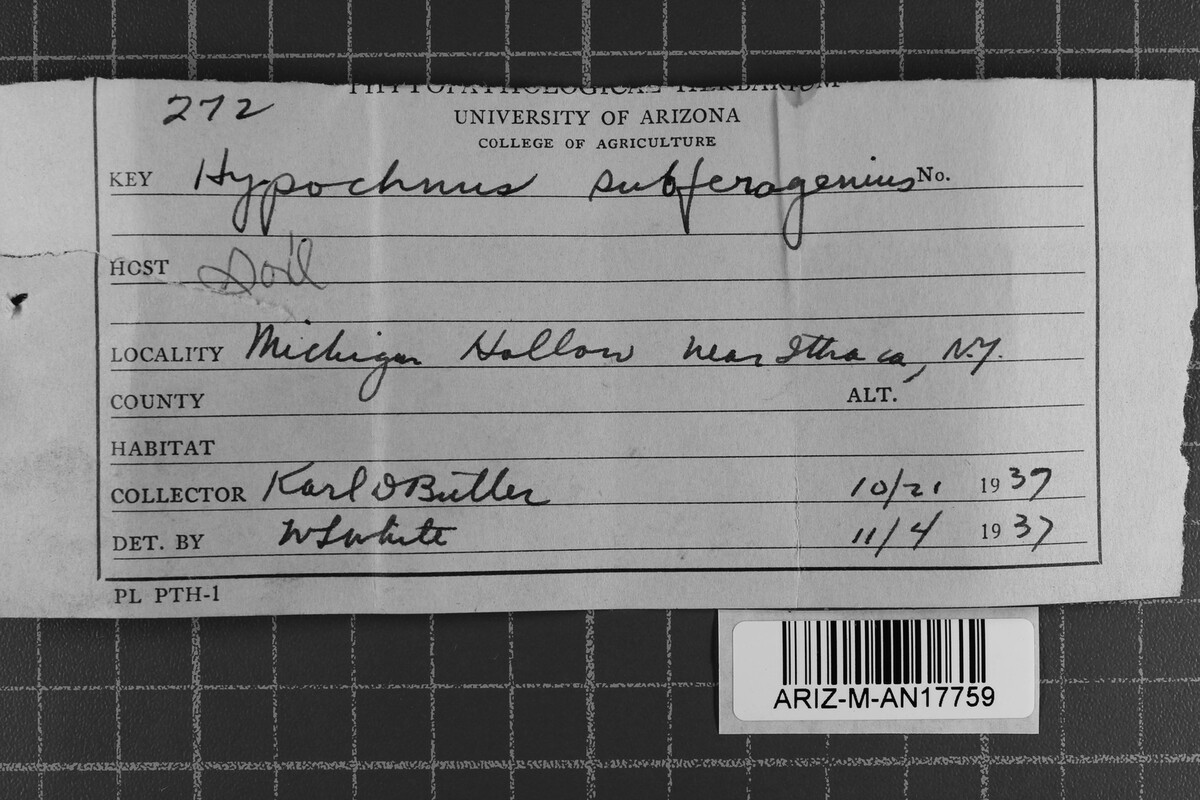 PHYTOPATHOLOGICAL HERBARIUM
272
UNIVERSITY OF ARIZONA
COLLEGE OF AGRICULTURE
KEY Hypochnus subferogenius No.
HOST Soil
LOCALITY Michigan Hollow near Ithaca, N.Y.
COUNTY ALT.
HABITAT
COLLECTOR Karl D Butler 10/21 1937
DET. BY W L White 11/4 1937
PL PTH-1
ARIZ-M-AN17759